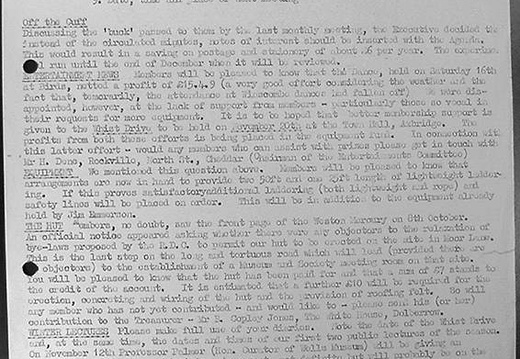 9. Date, time and place of next meeting
Off the Cuff
Discussing the 'buck' passed to them by the last monthly meeting, the Executive decided th
instead of the circulated minutes, notes of interest should be inserted with the Agenda.
This would result in a saving on postage and stationery of about £6 per year. The experimen
will run until the end of December when it will be reviewed.
ENTERTAINMENT NEWS Members will be pleased to know that the Dance, held on Saturday 16th
at Birds, noted a profit of £15.4.9 (a very good effort considering the weather and the
fact that, temporarily, the attendance at Biascombe dances had fallen off) We were dis-
appointed, however, at the lack of support from members - particularly those so vocal in
their requests for more equipment. It is to be hoped that better membership support is
given to the Whist Drive to be held on NOVEMBER 20th at the Town Hall, Axbridge. The
profits from both these efforts is being placed to the equipment fund. In connection with
this latter effort - would any members who can assist with prizes please get in touch with
Mr H. Dano, Rockville, North St., Cheddar (Chairman of the Entertainments Committee)
EQUIPMENT We mentioned this question above. Members will be pleased to know that
arrangements are now in hand to provide two 50ft's and one 25ft length of lightweight ladder-
ing. If this proves satisfactory additional laddering (both lightweight and rope) and
safety lines will be placed on order. This will be in addition to the equipment already
held by Jim Emmerson.
THE HUT Members, no doubt, saw the front page of the Weston Mercury on 8th October.
An official notice appeared asking whether there were any objectors to the relaxation of
bye-laws proposed by the R.D.C. to permit our hut to be erected on the site in Moor Lane.
This is the last step on the long and tortuous road which will lead (provided there are
no objectors) to the establishment of a Museum and Society meeting room on that site.
You will be pleased to know that the hut has been paid for and that a sum of £7 stands to
the credit of the account. It is estimated that a further £10 will be required for the
erection, concreting and wiring of the hut and the provision of roofing felt. So will
any member who has not yet contributed - and would like to - please send his (or her)
contribution to the Treasurer - Mr E. Copley Jones, The White House, Dolberrow.
WINTER LECTURES Please make full use of your diaries. Note the date of the Whist Drive
and, at the same time, the dates and times of our first two public lectures of the season.
On November 12th Professor Palmer (Hon. Curator of Wells Museum) will be giving an